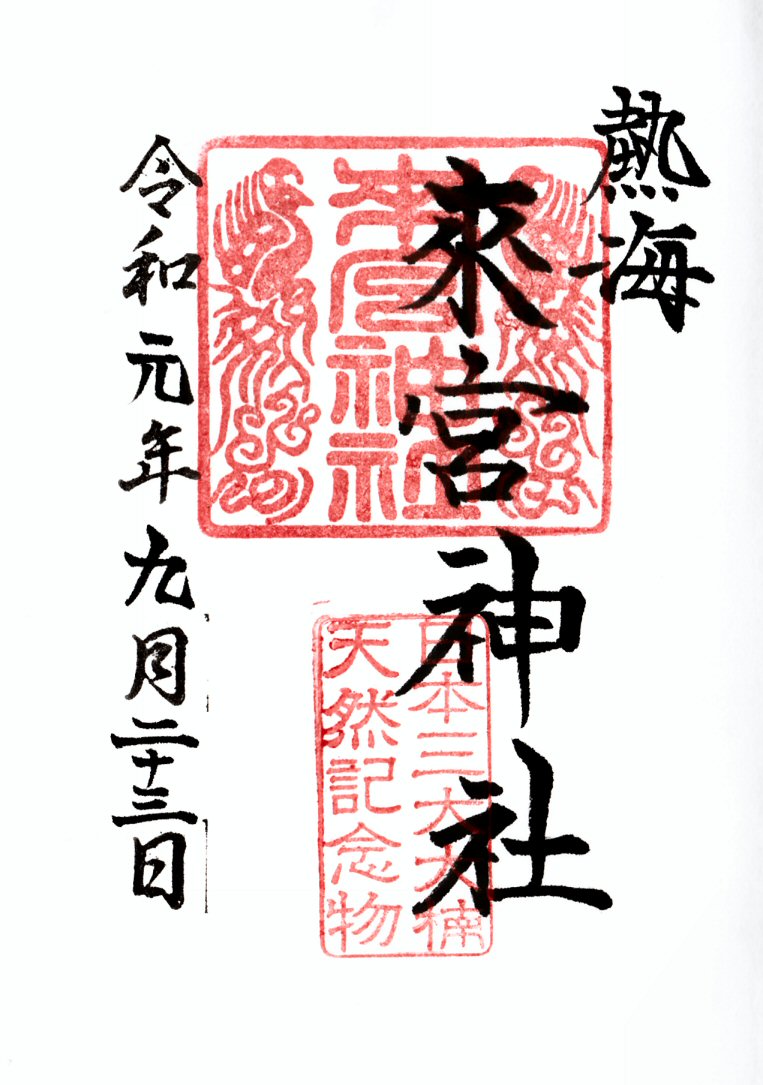 熱海
來宮神社
來宮神社
日本三大大楠
天然記念物
令和元年九月二十三日